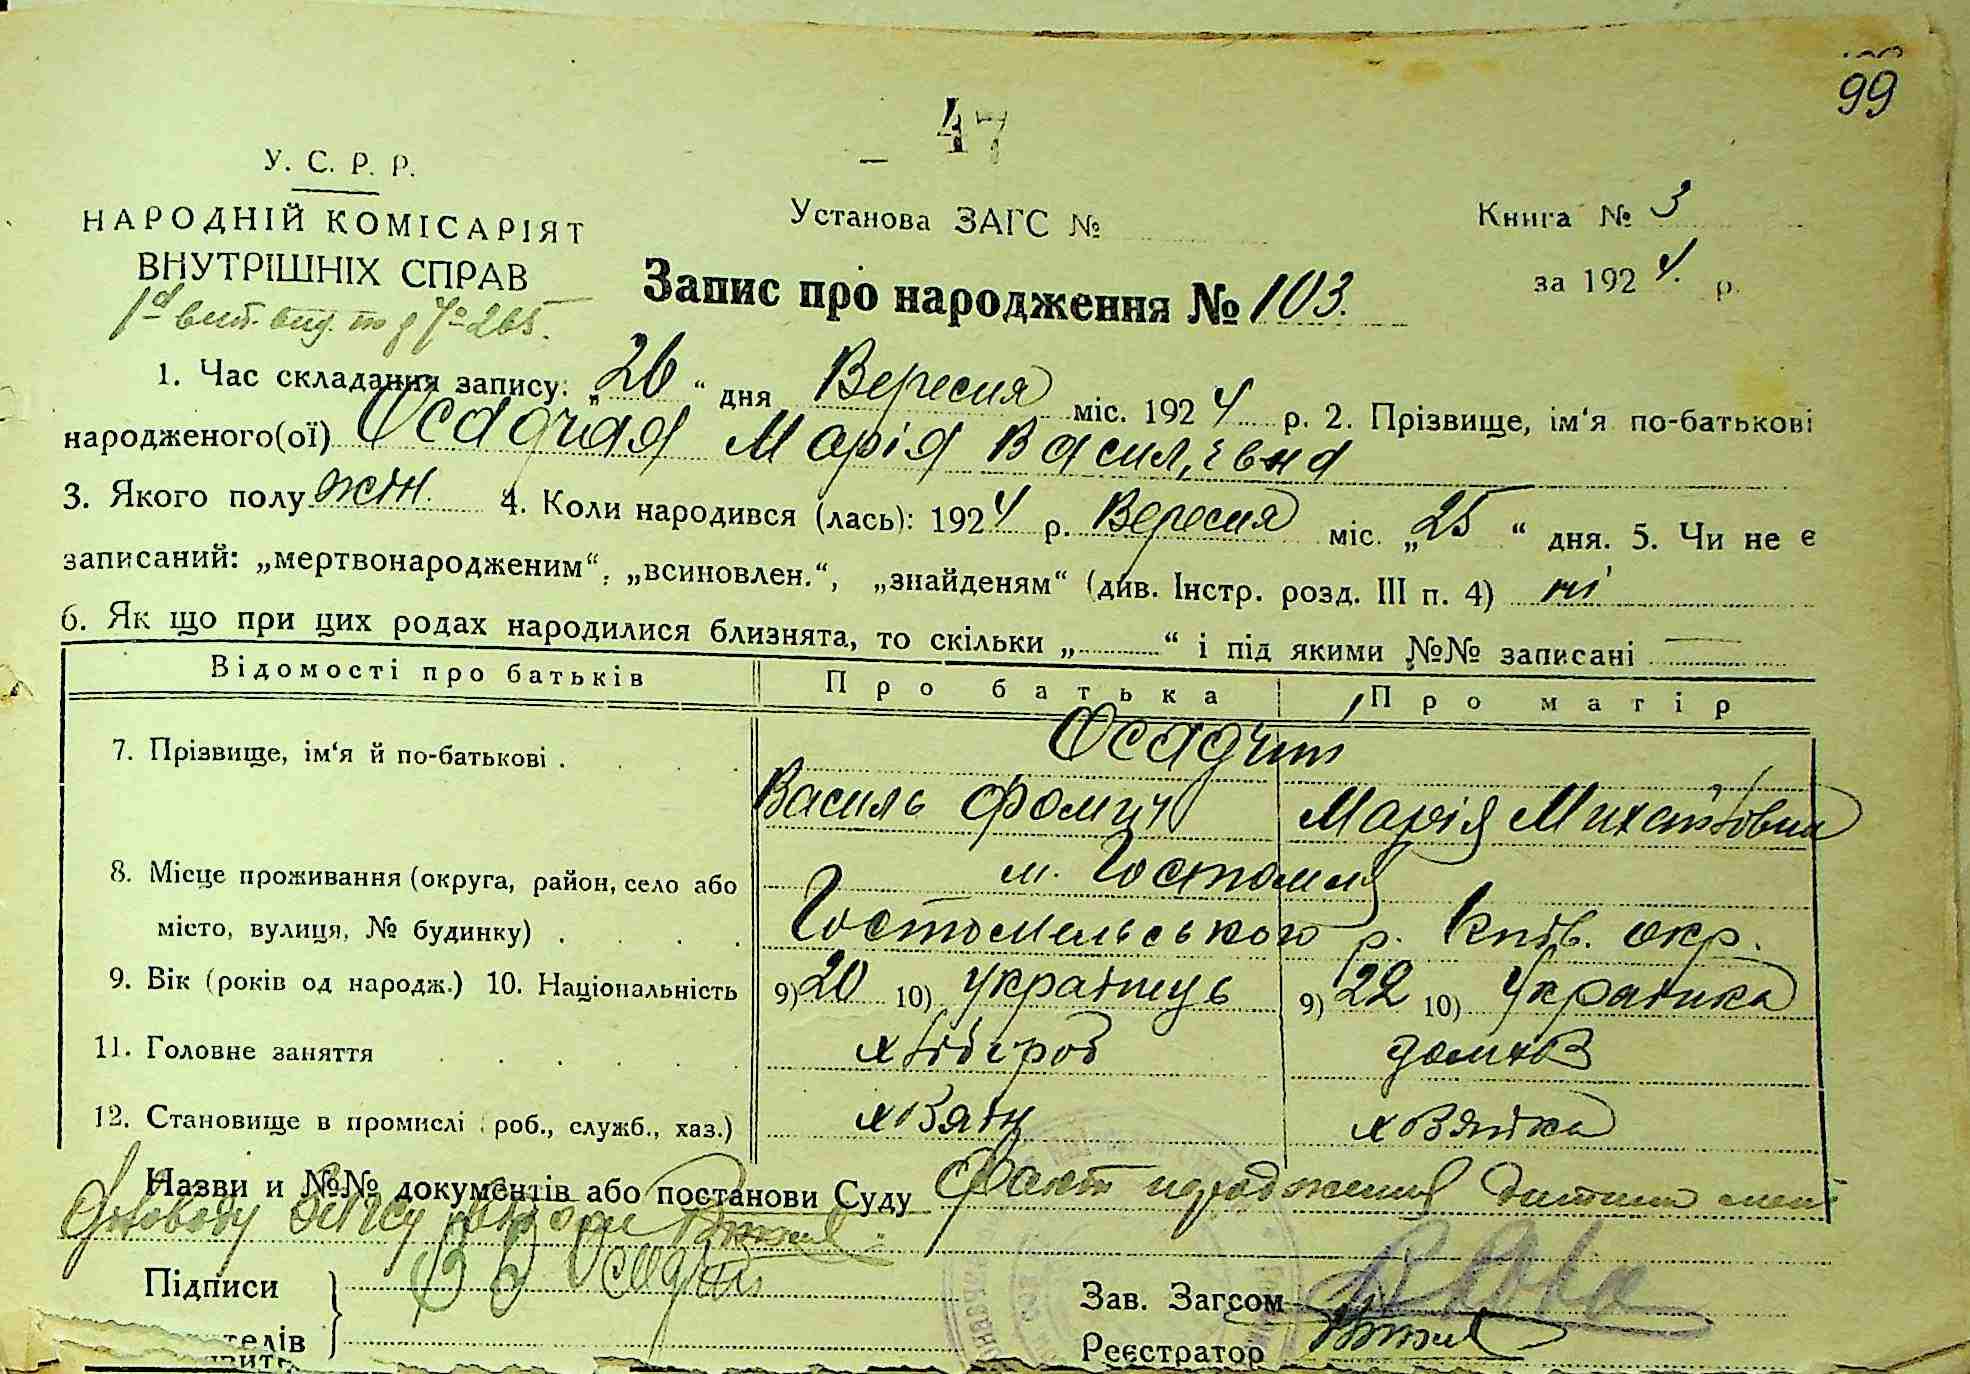 99
47
У. С. Р. Р.
НАРОДНІЙ КОМІСАРІЯТ
ВНУТРІШНІХ СПРАВ
Установа ЗАГС №
Книга № 3
за 1924 р.
Запис про народження № 103.
1. Час складання запису: „26“ дня Вересня міс. 1924 р. 2. Прізвище, ім‘я по-батькові
народженого(ої) Осадчая Марія Василівна
3. Якого полу жін. 4. Коли народився (лась): 1924 р. Вересня міс. „25“ дня. 5. Чи не є
записаний: „мертвонародженим“, „всиновлен.“, „знайденям“ (див. Інстр. розд. III п. 4) ні
6. Як що при цих родах народилися близнята, то скільки „......“ і під якими №№ записані —
Відомості про батьків Про батька Про матір
7. Прізвище, ім‘я й по-батькові . Осадчий
Василь Фомич Марія Михайловна
8. Місце проживання (округа, район, село або м. Гостомля
місто, вулиця, № будинку) . Гостомельського р. Київ. окр.
9. Вік (років од народж.) 10. Національність 9) 20 10) Українець 9) 22 10) Українка
11. Головне заняття хлібороб домхоз
12. Становище в промислі (роб., служб., хаз.) хазяїн хазяйка
Назви и №№ документів або постанови Суду Факт народження дитини
Підписи Осадчий
Зав. Загсом
Реєстратор